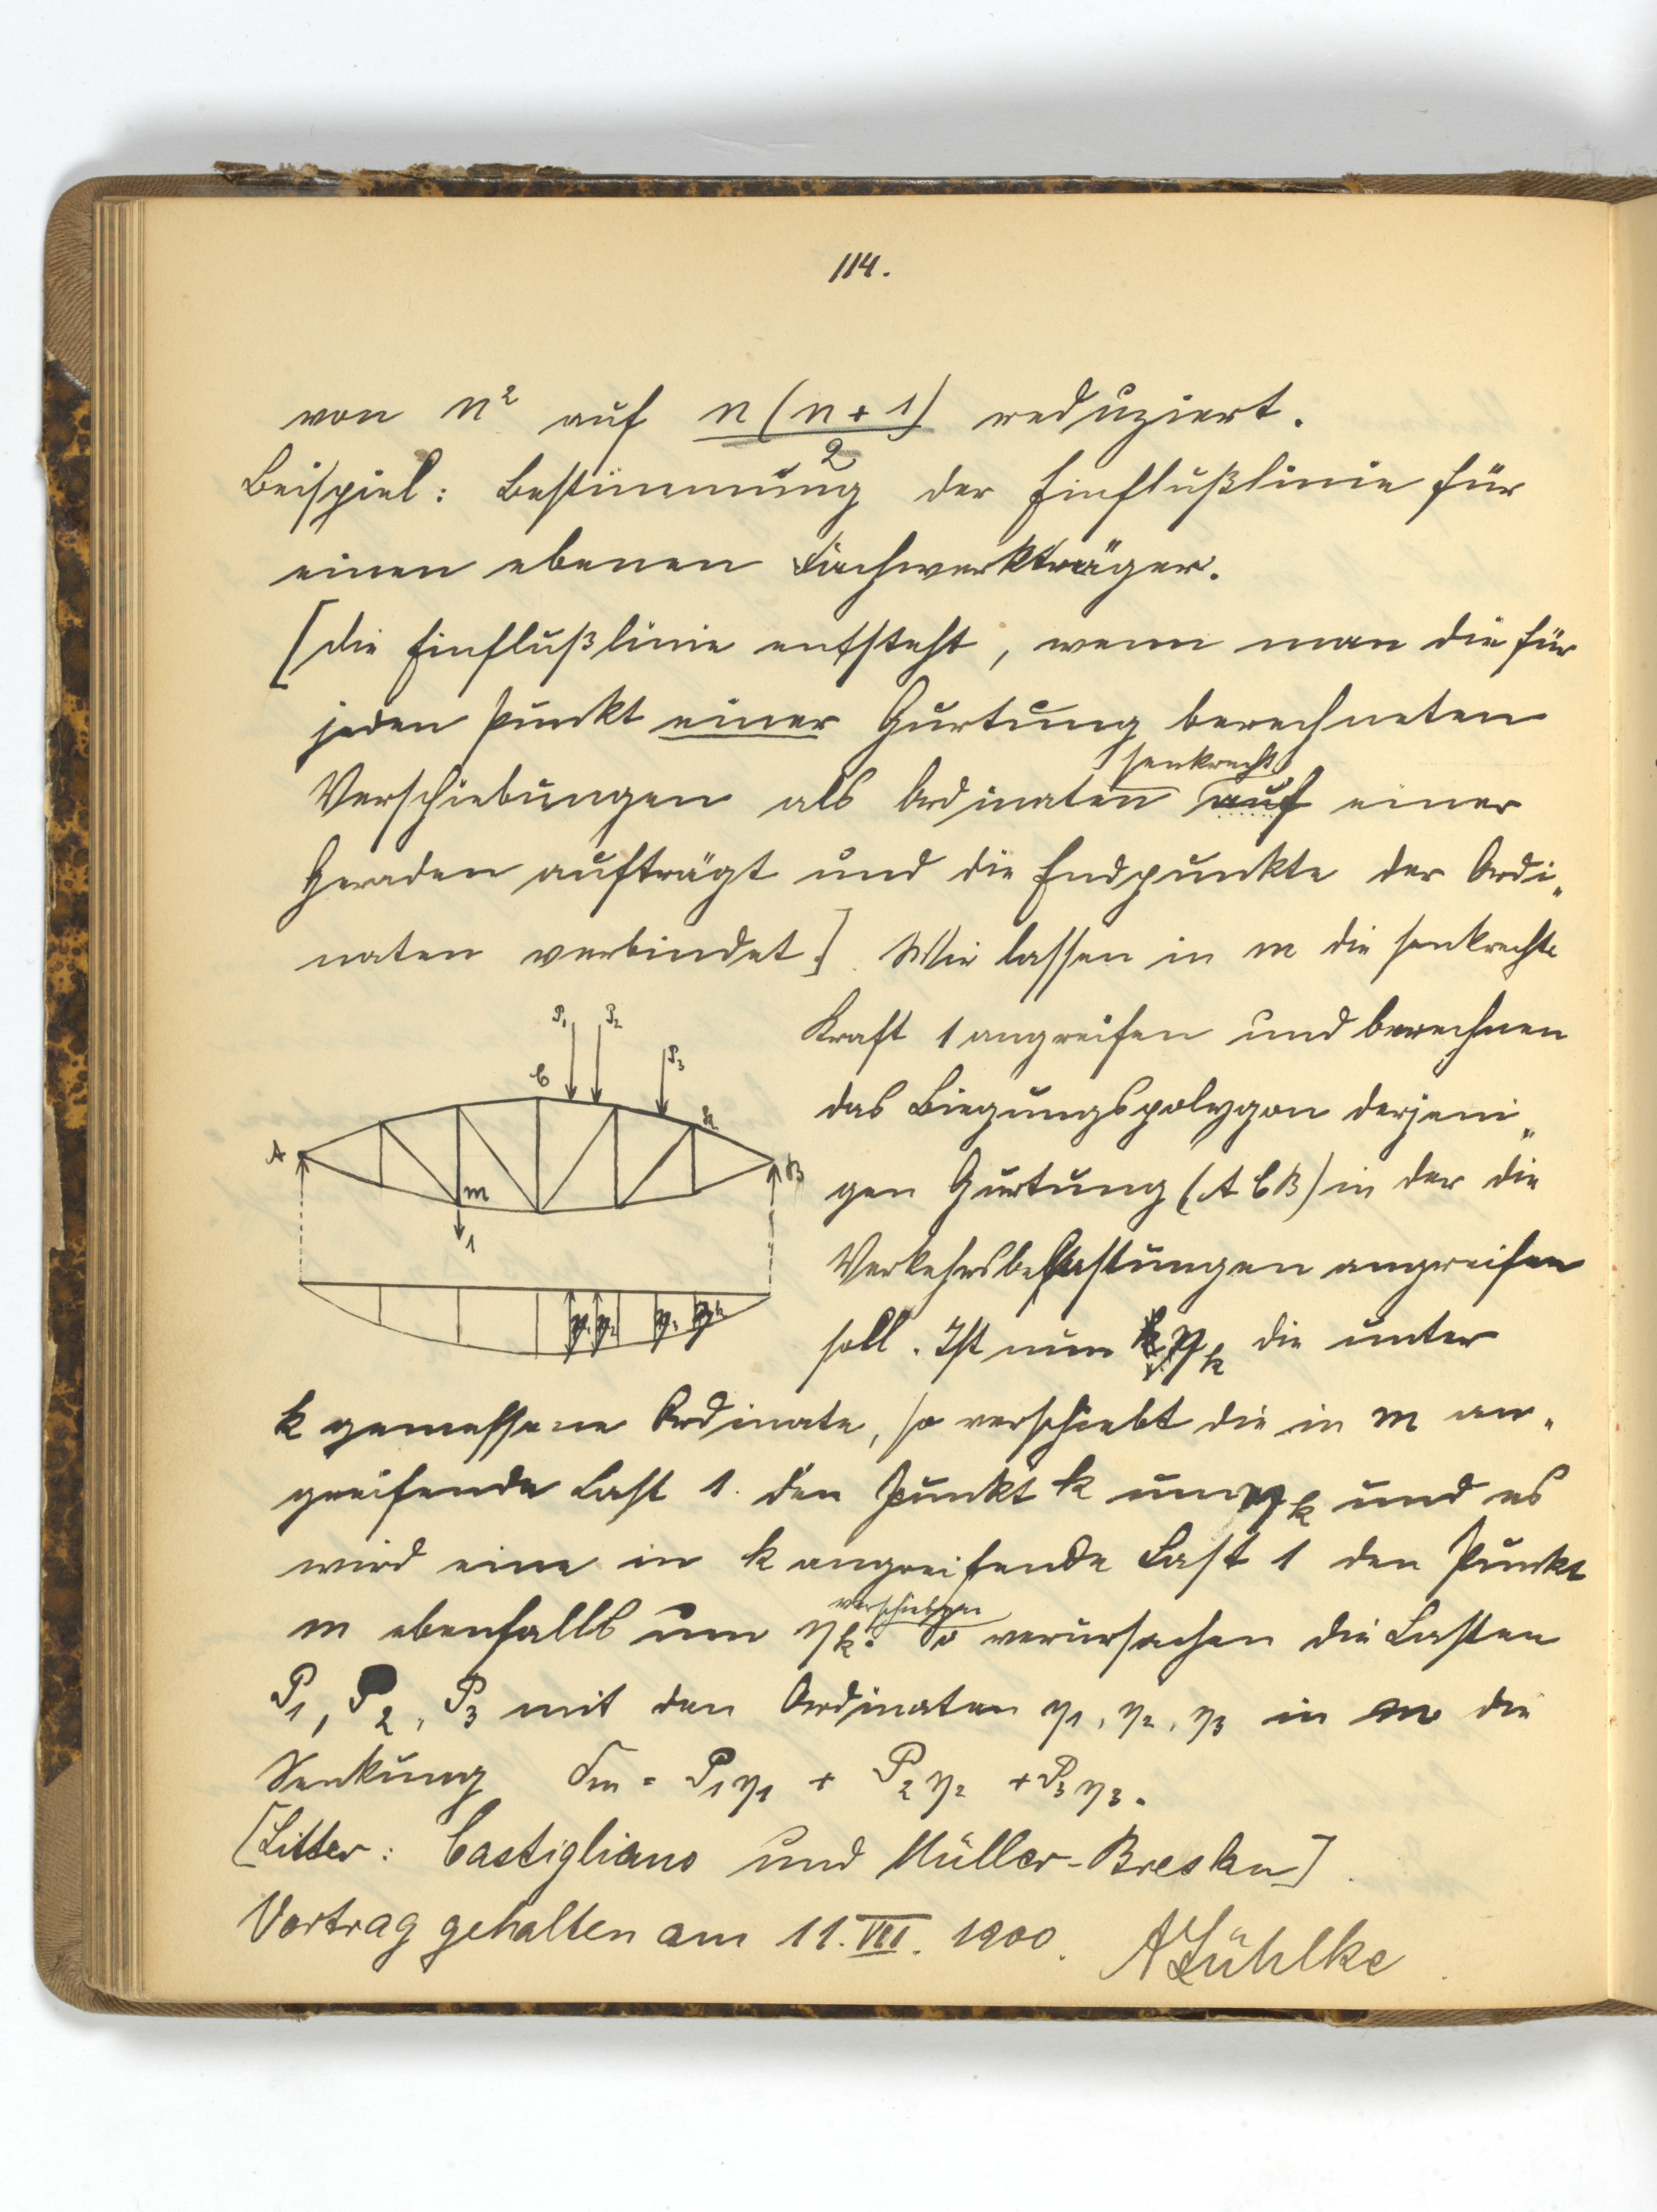 114.
von n² auf n(n+1)/2 reduziert.
Beispiel: Bestimmung der Einflußlinie für
einen ebenen Fachwerkträger.
[Die Einflußlinie entsteht, wenn man die für
jeden Punkt einer Gurtung berechneten
Verschiebungen als Ordinaten senkrecht auf einer
Geraden aufträgt und die Endpunkte der Ordi„
naten verbindet]. Wir lassen in m die senkrechte
P₁ P₂ P₃
C k
A B
m
1
η₁ η₂ η₃ ηk
Kraft 1 angreifen und berechnen
das Biegungspolygon derjeni„
gen Gurtung (ACB) in der die
Verkehrsbelastungen angreifen
soll. Ist nun ηk die unter
k gemessene Ordinate, so verschiebt die in m an„
greifende Last 1 den Punkt k um ηk und es
wird eine in k angreifende Last 1 den Punkt
m ebenfalls um ηk verschieben. So verursachen die Lasten
P₁, P₂, P₃ mit den Ordinaten η₁, η₂, η₃ in m die
Senkung δm = P₁η₁ + P₂η₂ + P₃η₃.
[Litter: Castigliano und Müller-Breslau].
Vortrag gehalten am 11. VII. 1900. A Lühlke